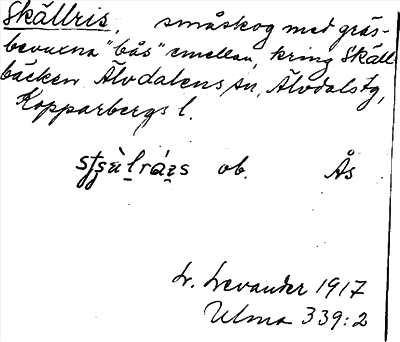 Skällris, småskog med gräs-
bevuxna "bås" emellan, kring Skäll
bäcken Älvdalens sn, Älvdals tg,
Kopparbergs l.
ob. Ås
L. Levander 1917
Ulma 339:2